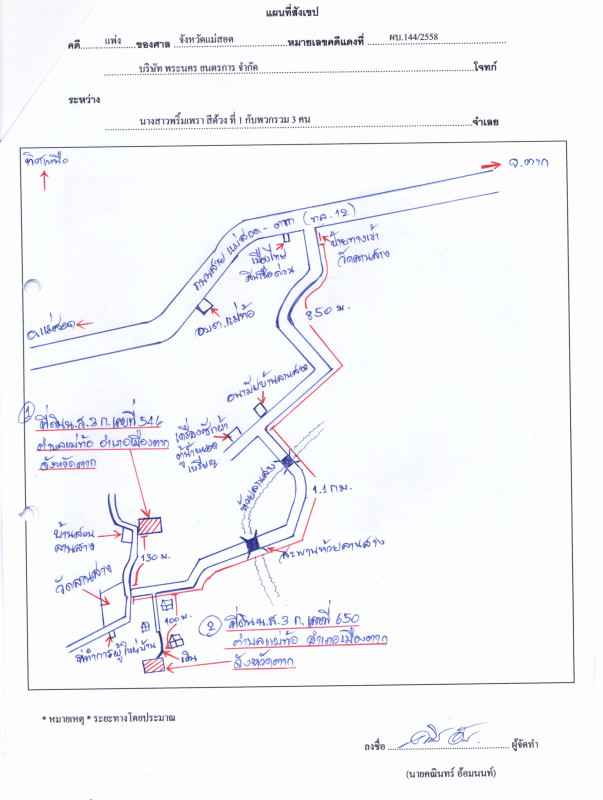 แผนที่สังเขป
คดี แพ่ง ของศาล จังหวัดแม่สอด หมายเลขคดีแดงที่ ผบ.144/2558
บริษัท พระนคร ยนตรการ จำกัด โจทก์
ระหว่าง
นางสาวพริ้มเพรา สีด้วง ที่ 1 กับพวกรวม 3 คน จำเลย
ทิศเหนือ
จ.ตาก
ถนนสาย แม่สอด - ตาก (ทล.12)
ป้ายทางเข้า
วัดลานสาง
เมืองไทย
สินเชื่อด่วน
อบต.แม่ท้อ
อ.แม่สอด
850 ม.
อนามัยบ้านลานสาง
① ที่ดิน น.ส.3 ก. เลขที่ 546
ตำบลแม่ท้อ อำเภอเมืองตาก
จังหวัดตาก
เครื่องซักผ้า
ตู้น้ำหยอด
เหรียญ
ห้วยลานสาง
1.1 กม.
บ้านสวน
ลานสาง
130 ม.
สะพานห้วยลานสาง
วัดลานสาง
100 ม.
② ที่ดิน น.ส.3 ก. เลขที่ 650
ตำบลแม่ท้อ อำเภอเมืองตาก
จังหวัดตาก
ที่ทำการผู้ใหญ่บ้าน
เดิน
* หมายเหตุ * ระยะทางโดยประมาณ
ลงชื่อ ผู้จัดทำ
(นายคณินทร์ อ้อมนนท์)